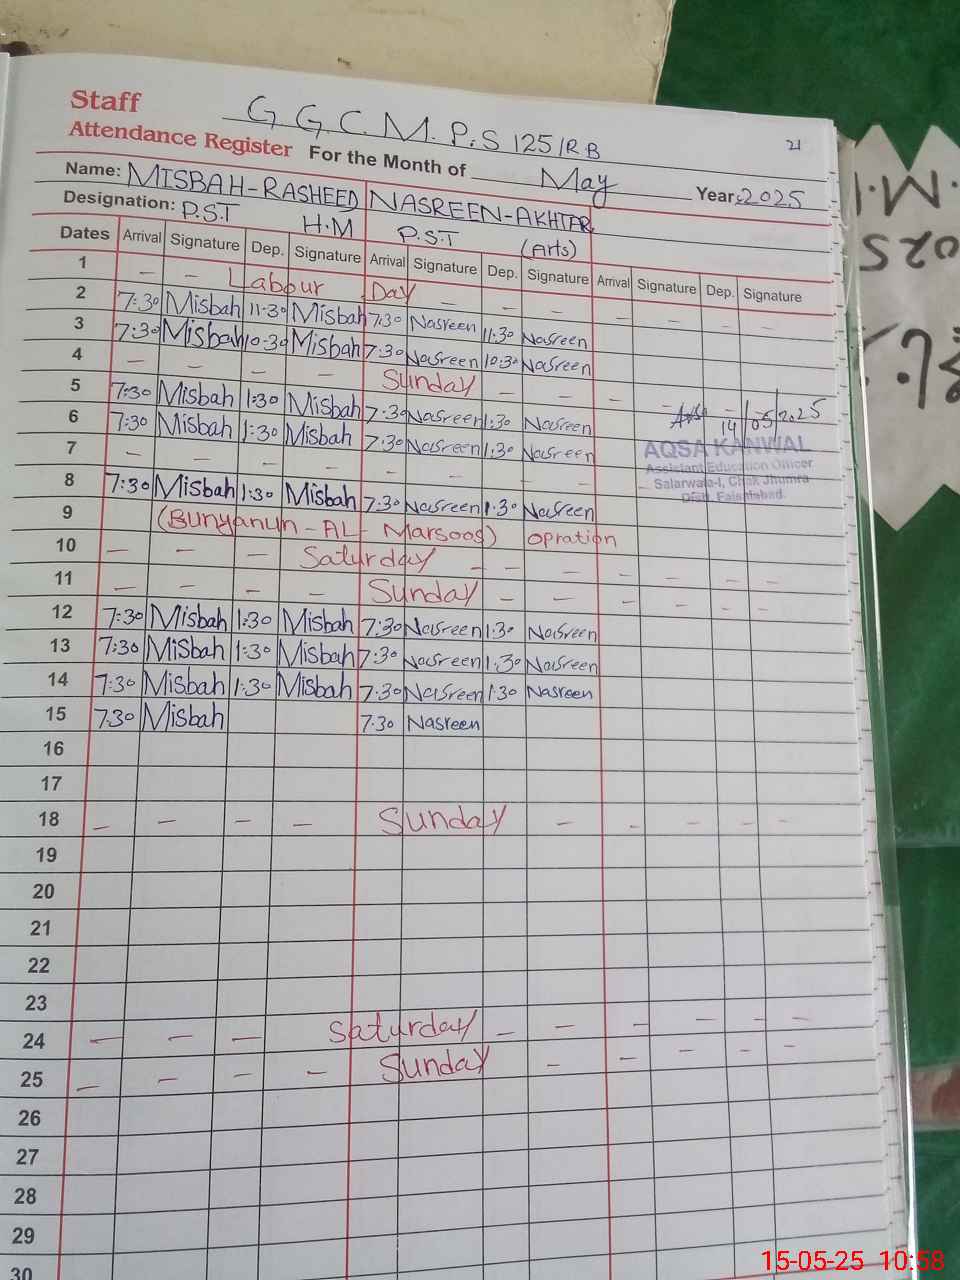 Staff
Attendance Register
G.G.C.M.P.S 125/RB
21
For the Month of May Year 2025
Name: MISBAH-RASHEED NASREEN-AKHTAR
Designation: P.S.T H.M P.S.T (Arts)
Dates Arrival Signature Dep. Signature Arrival Signature Dep. Signature Arrival Signature Dep. Signature
1 - - Labour Day - - - - - - -
2 7:30 Misbah 11:30 Misbah 7:30 Nasreen 11:30 Nasreen
3 7:30 Misbah 10:30 Misbah 7:30 Nasreen 10:30 Nasreen
4 - - - - Sunday - - - - -
5 7:30 Misbah 1:30 Misbah 7:30 Nasreen 1:30 Nasreen
14/05/2025
6 7:30 Misbah 1:30 Misbah 7:30 Nasreen 1:30 Nasreen
AQSA KANWAL
Assistant Education Officer
Salarwala-I, Chak Jhumra
Distt. Faisalabad.
7 - - - - - - - -
8 7:30 Misbah 1:30 Misbah 7:30 Nasreen 1:30 Nasreen
9 (Bunyanun-AL-Marsoos) opration
10 - - - Saturday - - - - - - -
11 - - - - Sunday - - - - - -
12 7:30 Misbah 1:30 Misbah 7:30 Nasreen 1:30 Nasreen
13 7:30 Misbah 1:30 Misbah 7:30 Nasreen 1:30 Nasreen
14 7:30 Misbah 1:30 Misbah 7:30 Nasreen 1:30 Nasreen
15 7:30 Misbah 7:30 Nasreen
16
17
18 - - - - Sunday - - - - -
19
20
21
22
23
24 - - - Saturday - - - - - -
25 - - - - Sunday - - - - -
26
27
28
29
30
15-05-25 10:58